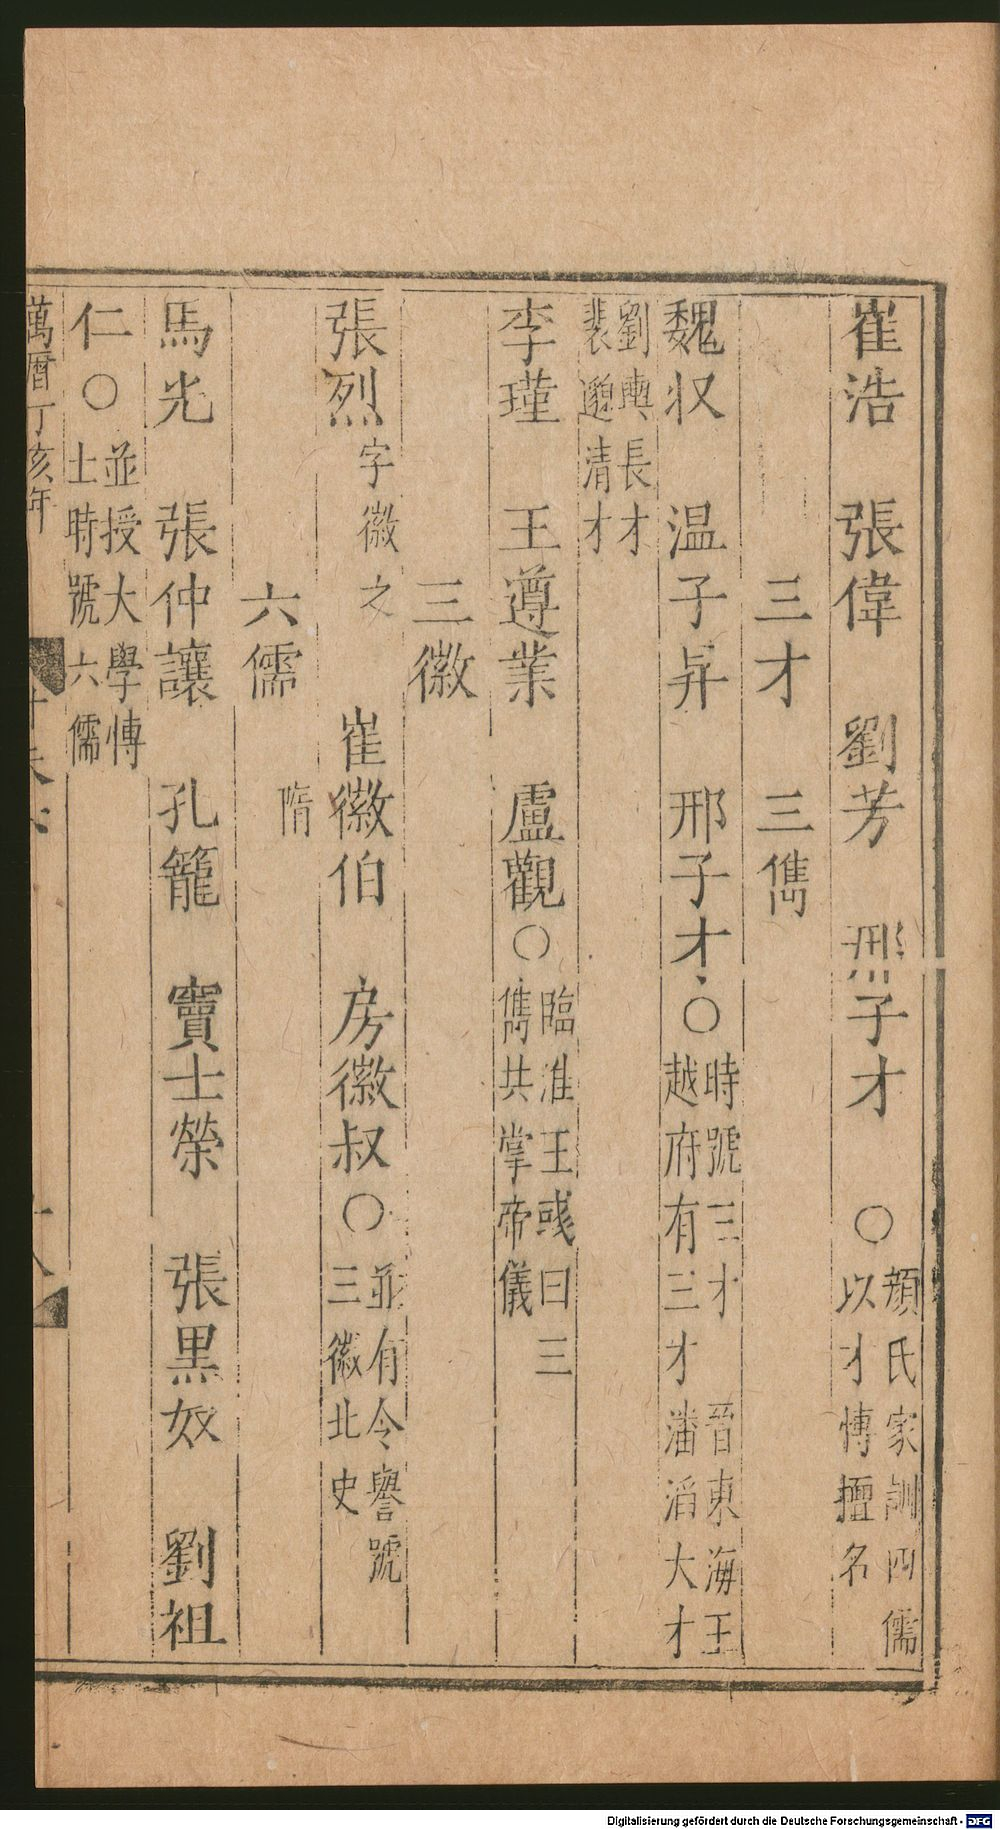 崔浩　張偉　劉芳　邢子才　〇顏氏家訓四儒以才慱擅名
三才　三儁
魏収　温子昇　邢子才〇時號三才越府有三才晉東海王潘滔大才
劉輿長才裴邈清才
李瑾　王遵業　盧觀〇臨淮王彧曰三儁共掌帝儀
三徽
張烈字徽之　崔徽伯　房徽叔〇並有令譽號三徽北史
六儒　隋
馬光　張仲讓　孔籠　竇士榮　張黒奴　劉祖
仁〇並授大學慱士時號六儒
萬曆丁亥年
Digitalisierung gefördert durch die Deutsche Forschungsgemeinschaft - DFG